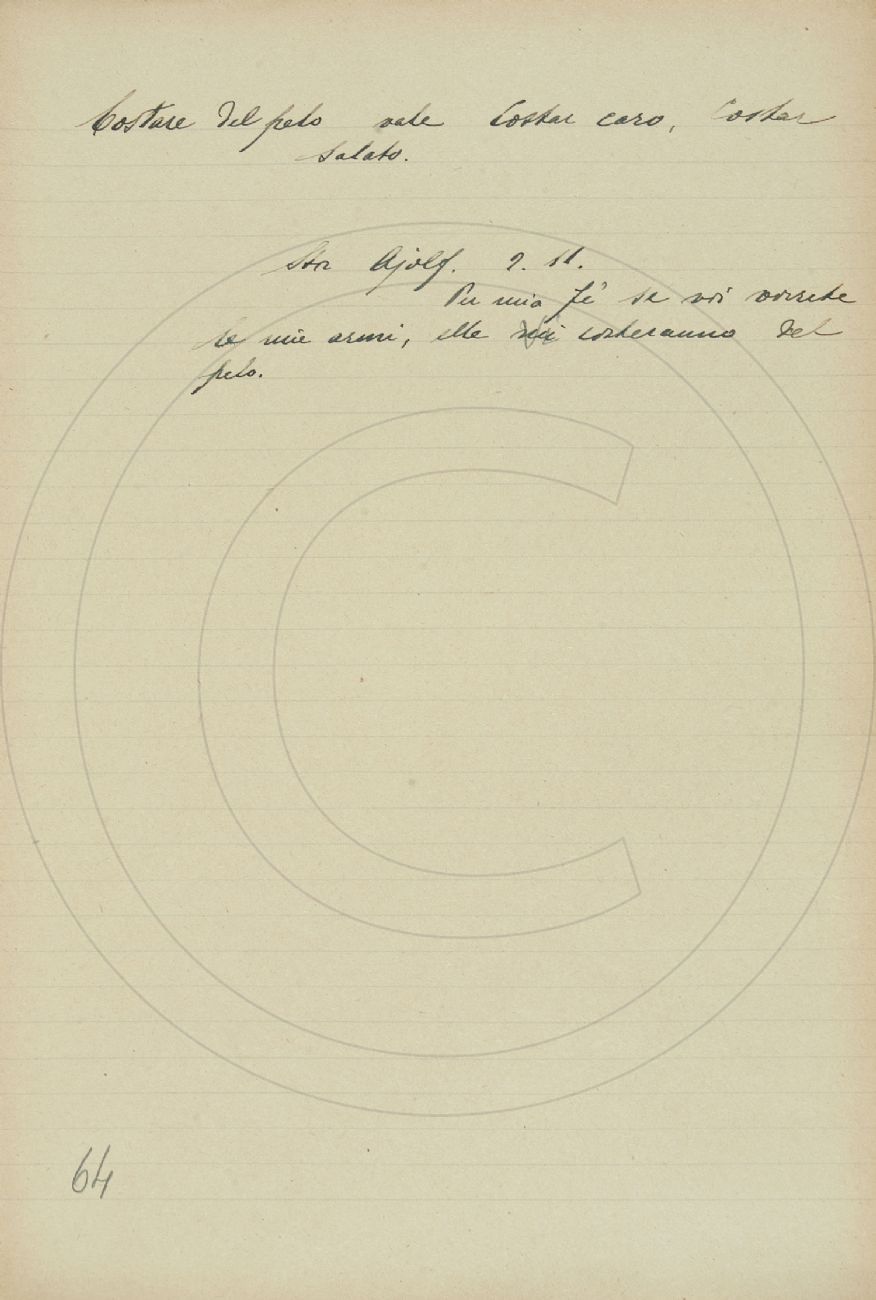 Costare del pelo vale Costar caro, Costar
salato.
Stor Ajolf. 2. 11.
Per mia fè se voi vorrete
le mie armi, elle costeranno del
pelo.
64